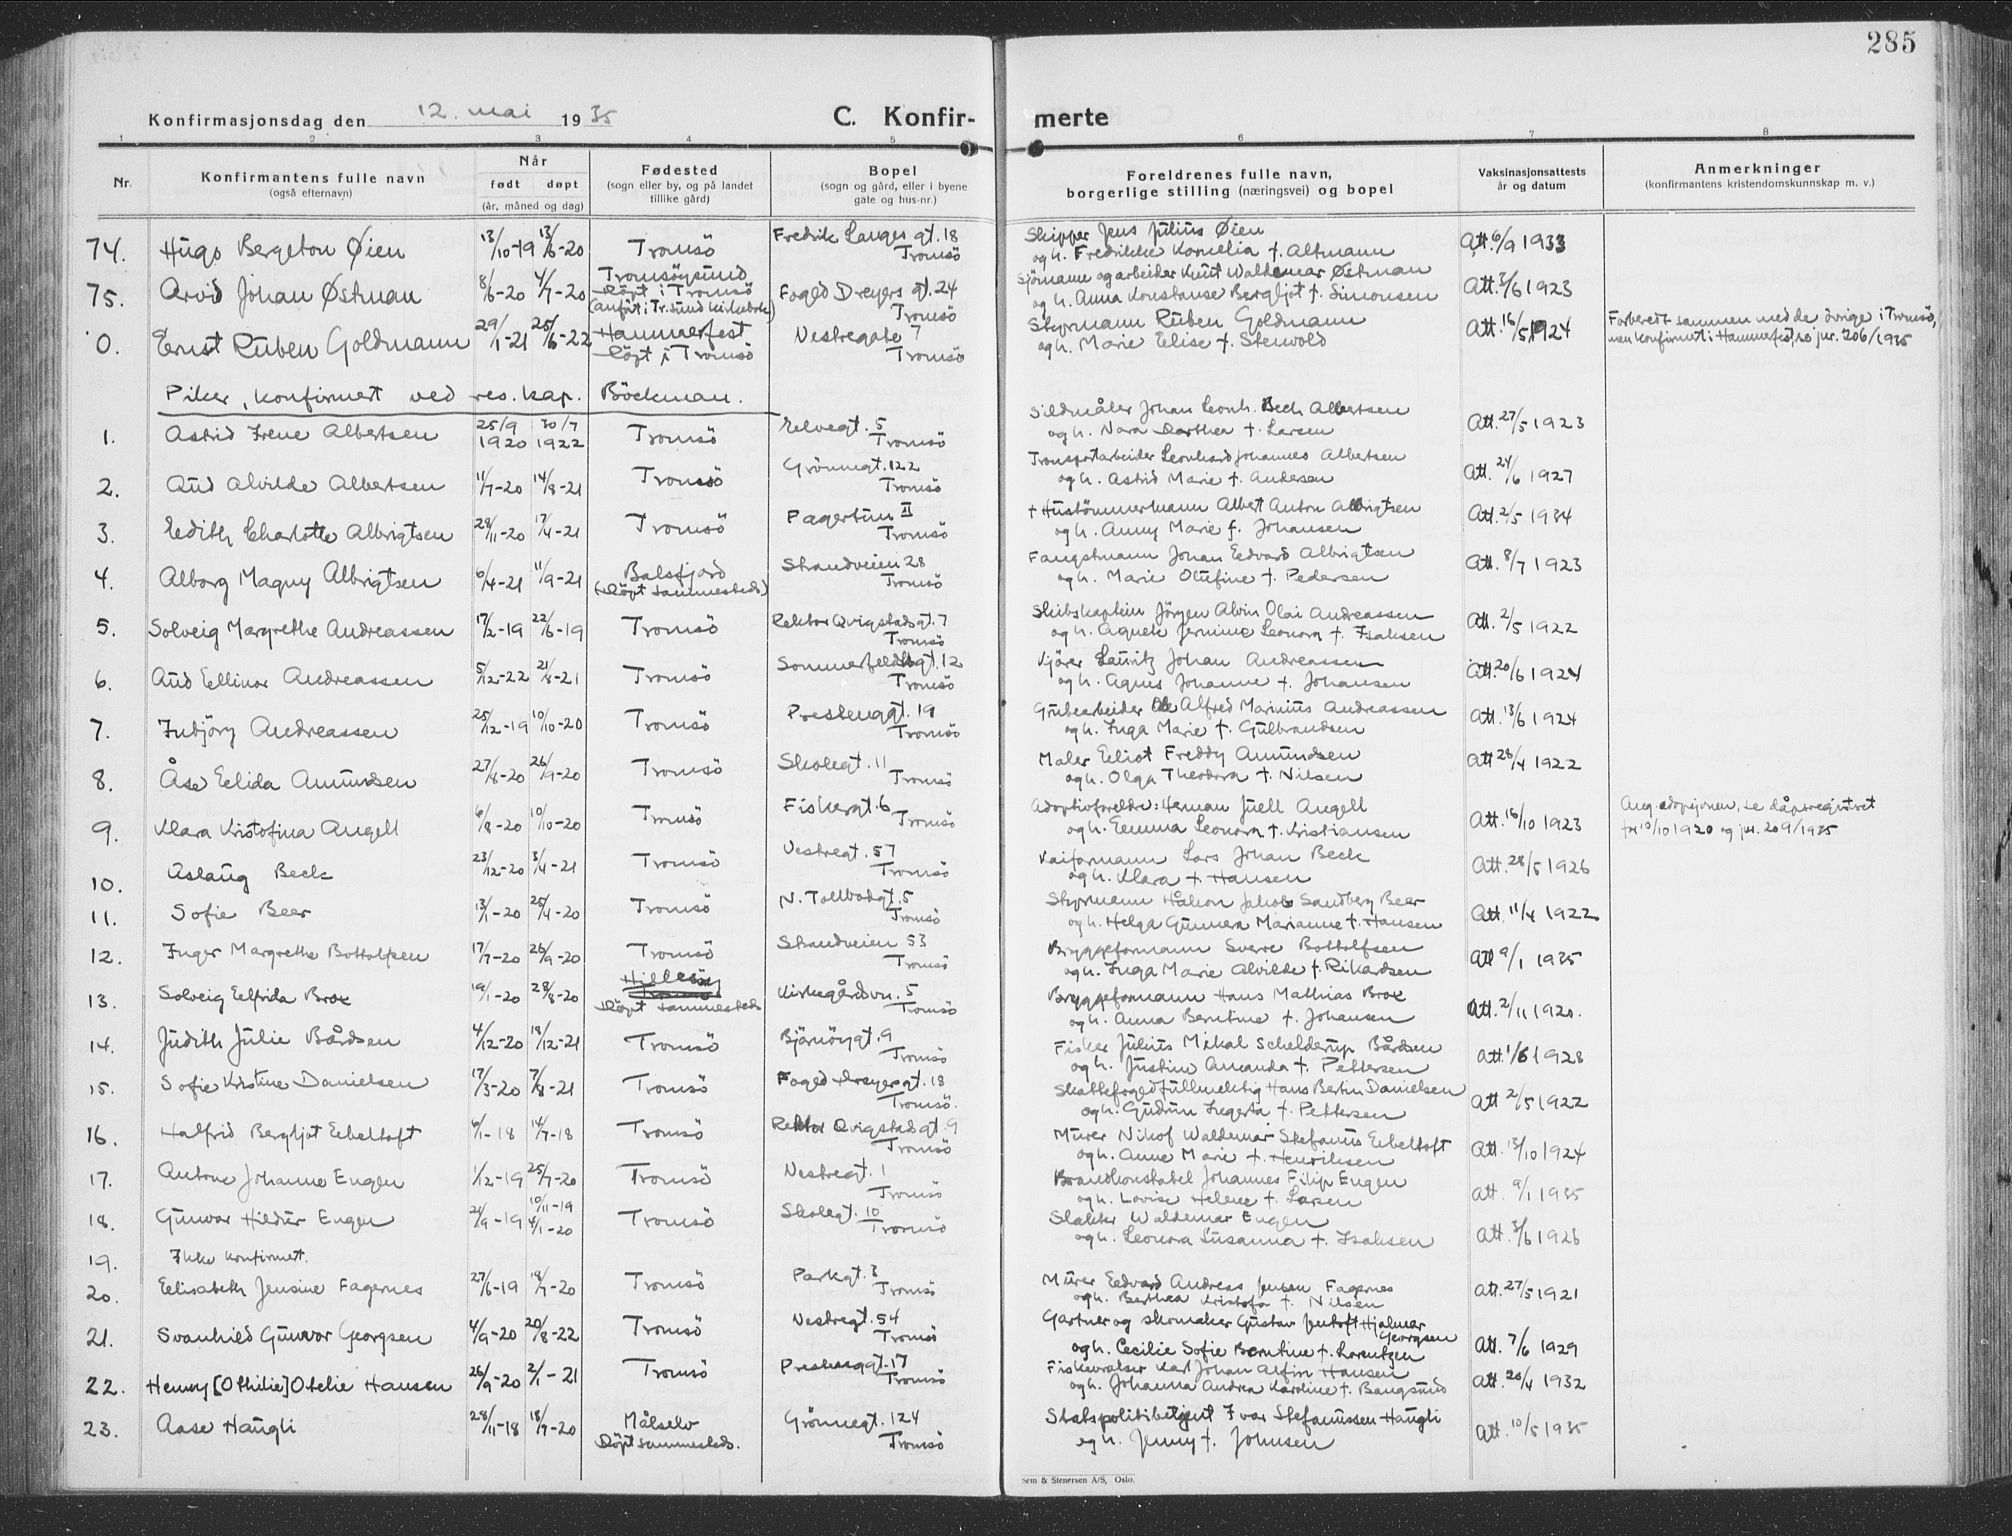 285
Konfirmasjonsdag den 12. mai 1935 C. Konfir- merte
1 2 3 4 5 6 7 8
Nr. Konfirmantens fulle navn (også efternavn) Når født døpt (år, måned og dag) Fødested (sogn eller by, og på landet tillike gård) Bopel (sogn og gård, eller i byene gate og hus-nr.) Foreldrenes fulle navn, borgerlige stilling (næringsvei) og bopel Vaksinasjonsattests år og datum Anmerkninger (konfirmantens kristendomskunnskap m. v.)
74. Hugo Bergeton Øien 13/10-19 13/6-20 Tromsö Fredrik Langes gt. 18 Tromsö Skipper Jens Julius Øien og h. Fredrikke Kornelia f. Altmann Att. 6/9 1933
75. Arvid Johan Østman 8/6-20 4/7-20 Tromsöysund Döpt i Tromsö (anført i Tr.sund kirkebok) Foged Dreyers gt. 24 Tromsö Sjömann og arbeider Knut Waldemar Østman og h. Anna Konstanse Bergljot f. Simonsen Att. 7/6 1923
0. Ernst Ruben Goldmann 29/1-21 25/6-22 Hammerfest Döpt i Tromsö Vestregate 7 Tromsö Styrmann Ruben Goldmann og h. Marie Elise f. Stenvold Att. 16/5 1924 Forberedt sammen med de övrige i Tromsö, men konfirmert i Hammerfest, se jnr. 206/1935
Piker, konfirmert ved res. kap. Böckman.
1. Astrid Irene Albertsen 25/9 1920 30/7 1922 Tromsö Elvegt. 5 Tromsö Sildmåler Johan Leonh. Bech Albertsen og h. Nora Dorthea f. Larsen Att. 27/5 1923
2. Aud Alvilde Albertsen 11/7-20 14/8-21 Tromsö Grönnegt. 122 Tromsö Transportarbeider Leonhard Johannes Albertsen og h. Astrid Marie f. Andersen Att. 24/6 1927
3. Edith Charlotte Albrigtsen 28/11-20 17/4-21 Tromsö Fagertun II Tromsö + Hustömmermann Albert Anton Albrigtsen og h. Anny Marie f. Johansen Att. 2/5 1934
4. Alborg Magny Albrigtsen 6/4-21 11/9-21 Balsfjord (Döpt sammesteds) Strandveien 28 Tromsö Fangstmann Johan Edvard Albrigtsen og h. Marie Olufine f. Pedersen Att. 8/7 1923
5. Solveig Margrethe Andreassen 17/2-19 22/6-19 Tromsö Rektor Qvigstads gt. 7 Tromsö Skibskaptein Jörgen Alvin Olai Andreassen og h. Agnete Jernine Leonora f. Isaksen Att. 2/5 1922
6. Aud Ellinor Andreassen 5/12-22 21/8-21 Tromsö Sommerfeldts gt. 12 Tromsö Kjörer Lauritz Johan Andreassen og h. Agnes Johanne f. Johansen Att. 20/6 1924
7. Inbjörg Andreassen 25/12-19 10/10-20 Tromsö Prestenggt. 19 Tromsö Grubearbeider Ole Alfred Marinius Andreassen og h. Inga Marie f. Gulbrandsen Att. 13/6 1924
8. Åse Elida Amundsen 27/4-20 26/9-20 Tromsö Skolegt. 11 Tromsö Maler Eliot Freddy Amundsen og h. Olga Theodora f. Nilsen Att 28/4 1922
9. Klara Kristofina Angell 6/8-20 10/10-20 Tromsö Fiskergt. 6 Tromsö Adoptivforeldre: Herman Juell Angell og h. Emma Leonora f. Kristiansen Att. 16/10 1923 Ang. adopsjonen, se dåpsregistret for 10/10 1920 og jnr. 209/1935
10. Aslaug Beck 23/12-20 3/4-21 Tromsö Vestregt. 57 Tromsö Kaiformann Lars Johan Beck og h. Klara f. Hansen Att. 28/5 1926
11. Sofie Beer 13/1-20 25/4-20 Tromsö N. Tollbodgt. 5 Tromsö Styrmann Håkon Jakob Sandberg Beer og h. Helga Gunnera Marianne f. Hansen Att. 11/4 1922
12. Inger Margrethe Bottolfsen 17/7-20 26/9-20 Tromsö Strandveien 53 Tromsö Bryggeformann Sverre Bottolfsen og h. Inga Marie Alvilde f. Rikardsen Att 9/1 1935
13. Solveig Elfrida Brox 19/1-20 28/8-20 Hillesöy Tromsö Döpt sammesteds Kirkegårdsvn. 5 Tromsö Bryggeformann Hans Mathias Brox og h. Anna Berntine f. Johansen Att. 2/11 1920.
14. Judith Julie Bårdsen 4/12-20 18/12-21 Tromsö Björnöygt. 9 Tromsö Fisker Julius Mikal Schelderup Bårdsen og h. Justine Amanda f. Pettersen Att. 1/6 1928
15. Sofie Kristine Danielsen 17/3-20 7/8-21 Tromsö Foged Dreyersgt. 18 Tromsö. Skattefogedfullmektig Hans Bertin Danielsen og h. Gudrun Ingerta f. Pettersen Att 2/5 1922
16. Halfrid Bergljot Ebeltoft 6/1-18 14/7-18 Tromsö Rektor Qvigstads gt. 9 Tromsö Murer Nikof Waldemar Stefanus Ebeltoft og h. Anne Marie f. Henriksen Att. 13/10 1924
17. Antone Johanne Engen 1/12-19 25/7-20 Tromsö Vestregt. 1 Tromsö Brandkonstabel Johannes Filip Engen og h. Lovise Helene f. Larsen Att. 9/1 1935
18. Gunvor Hildur Engen 24/9-19 10/11-19 4/1-20 Tromsö Skolegt. 10 Tromsö Slakter Waldemar Engen og h. Leonora Susanna f. Isaksen Att. 3/6 1926
19. Ikke konfirmert.
20. Elisabeth Jensine Fagernes 27/6-19 18/7-20 Tromsö Parkgt. 3 Tromsö Murer Edvard Andreas Jensen Fagernes og h. Berthea Kristofa f. Nilsen Att. 27/5 1921
21. Svanhild Gunvor Georgsen 4/9-20 20/8-22 Tromsö Vestregt. 54 Tromsö Gartner og skomaker Gustav Jentoft Hjalmar Georgsen og h. Cecilie Sofie Berntine f. Lorentzen Att. 7/6 1929
22. Henny [Othilie] Otelie Hansen 26/9-20 2/1-21 Tromsö Prestenggt. 17 Tromsö Fiskevraker Karl Johan Alfin Hansen og h. Johanna Andrea Karoline f. Bangsund Att. 20/4 1932
23. Aase Haugli 28/11-18 18/9-20 Målselv Döpt sammesteds. Grönnegt. 124 Tromsö Statspolitibetjent Ivar Stefanussen Haugli og h. Jenny f. Johnsen Att. 10/5 1935
Sem & Stenersen A/S, Oslo.